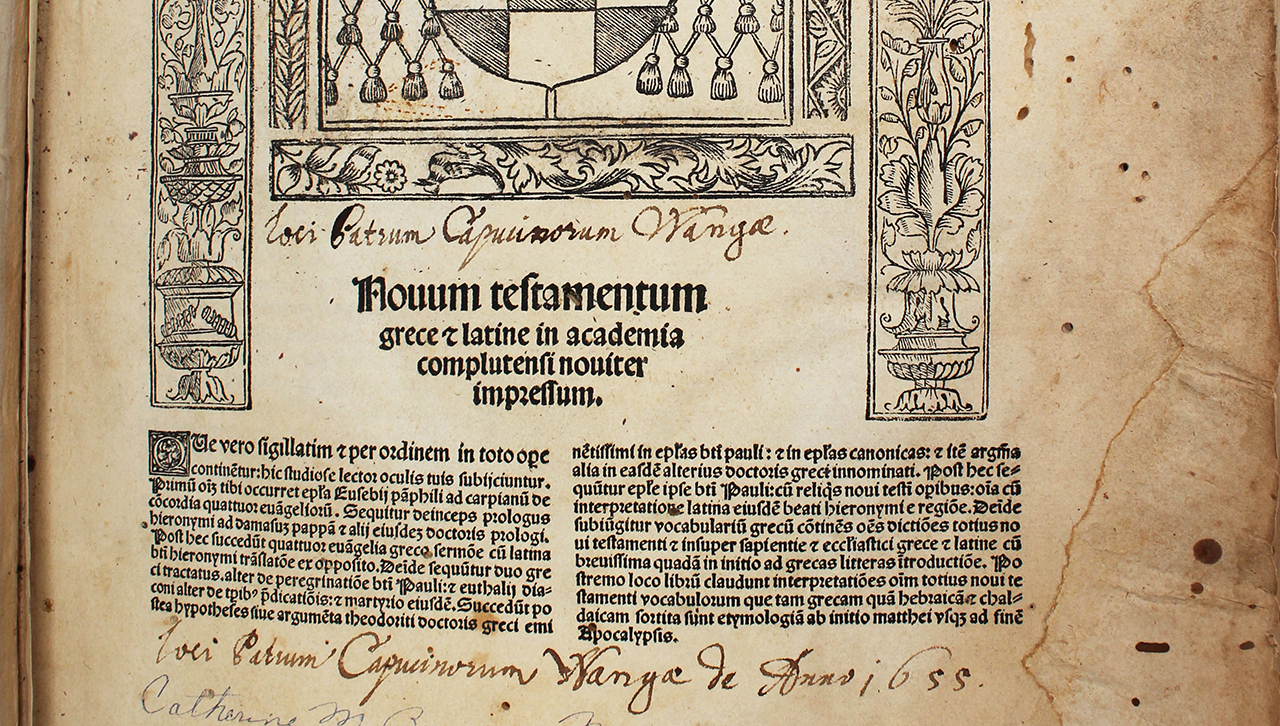 Loci Patrum Capucinorum Wangæ.
Nouum testamentum
grece ⁊ latine in academia
complutensi nouiter
impressum.
QUe vero sigillatim ⁊ per ordinem in toto ope
continētur: hic studiose lector oculis tuis subijciuntur.
Primū oīʒ tibi occurret epl̄a Eusebij pāphili ad carpianū de
cōcordia quattuor euāgeliorū. Sequitur deinceps prologus
hieronymi ad damasuʒ pappā ⁊ alij eiusdeʒ doctoris prologi.
Post hec succedūt quattuor euāgelia greco sermōe cū latina
bt̄i hieronymi trāslatōe ex opposito. Deīde sequūtur duo gre
ci tractatus. alter de peregrinatiōe bt̄i Pauli: ⁊ euthalij dia-
coni alter de tꝑib⁹ p̄dicatiōis: ⁊ martyrio eiusdē. Succedūt po
stea hypotheses siue argumēta theodoriti doctoris greci emi
nētissimi in epl̄as bt̄i pauli: ⁊ in epl̄as canonicas: ⁊ itē argm̄a
alia in easdē alterius doctoris greci innominati. Post hec se-
quūtur epl̄e ipse bt̄i Pauli: cū reliq̄s noui testi oꝑibus: oīa cū
interpretatione latina eiusdē beati hieronymi e regiōe. Deīde
subiūgitur vocabulariū grecū cōtinēs oēs dictiōes totius no
ui testamenti ⁊ insuper sapientie ⁊ eccl̄iastici grece ⁊ latine cū
breuissima quadā in initio ad grecas litteras ītroductiōe. Po
stremo loco librū claudunt interpretatiōes oīm totius noui te
stamenti vocabulorum que tam grecam quā hebraicā ⁊ chal-
daicam sortita sūnt etymologiā ab initio matthei vsqʒ ad finē
Apocalypsis.
Loci Patrum Capucinorum Wangæ de Anno 1655.
Catherine M.